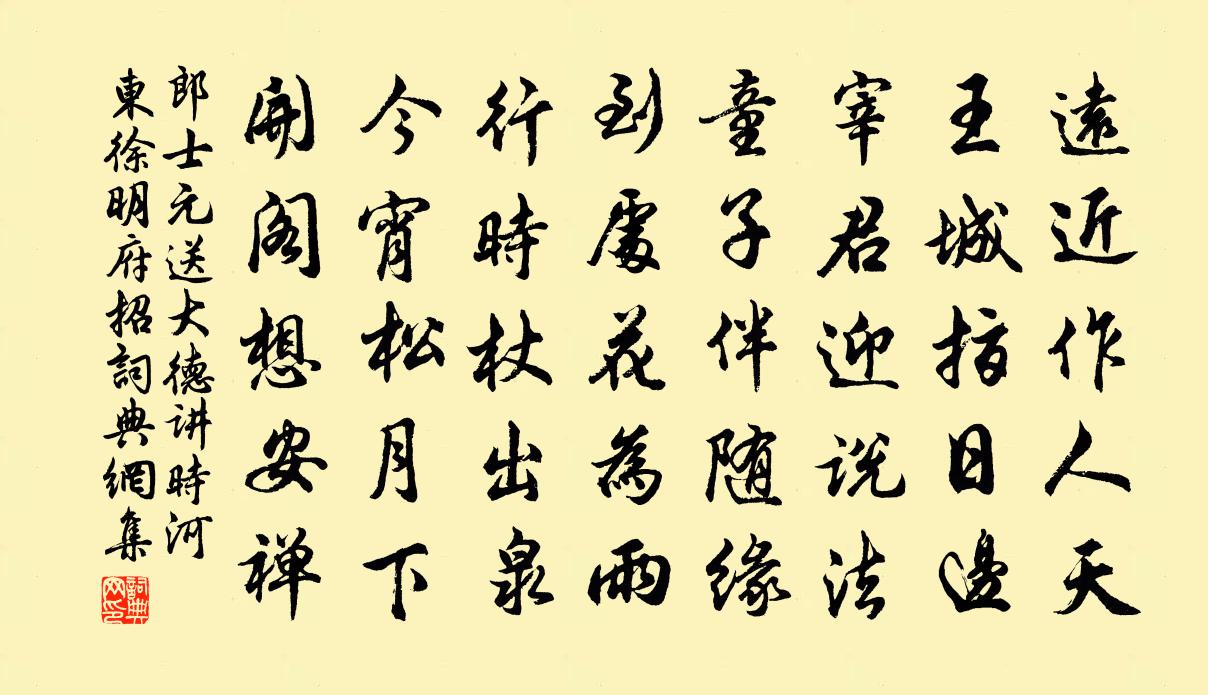 遠近作人天
王城指日邊
宰君迎説法
童子伴随緣
到處花為雨
行時杖出泉
今宵松月下
開閣想安禅
郎士元送大德讲時河
東徐明府招詞典網集
詞典网印